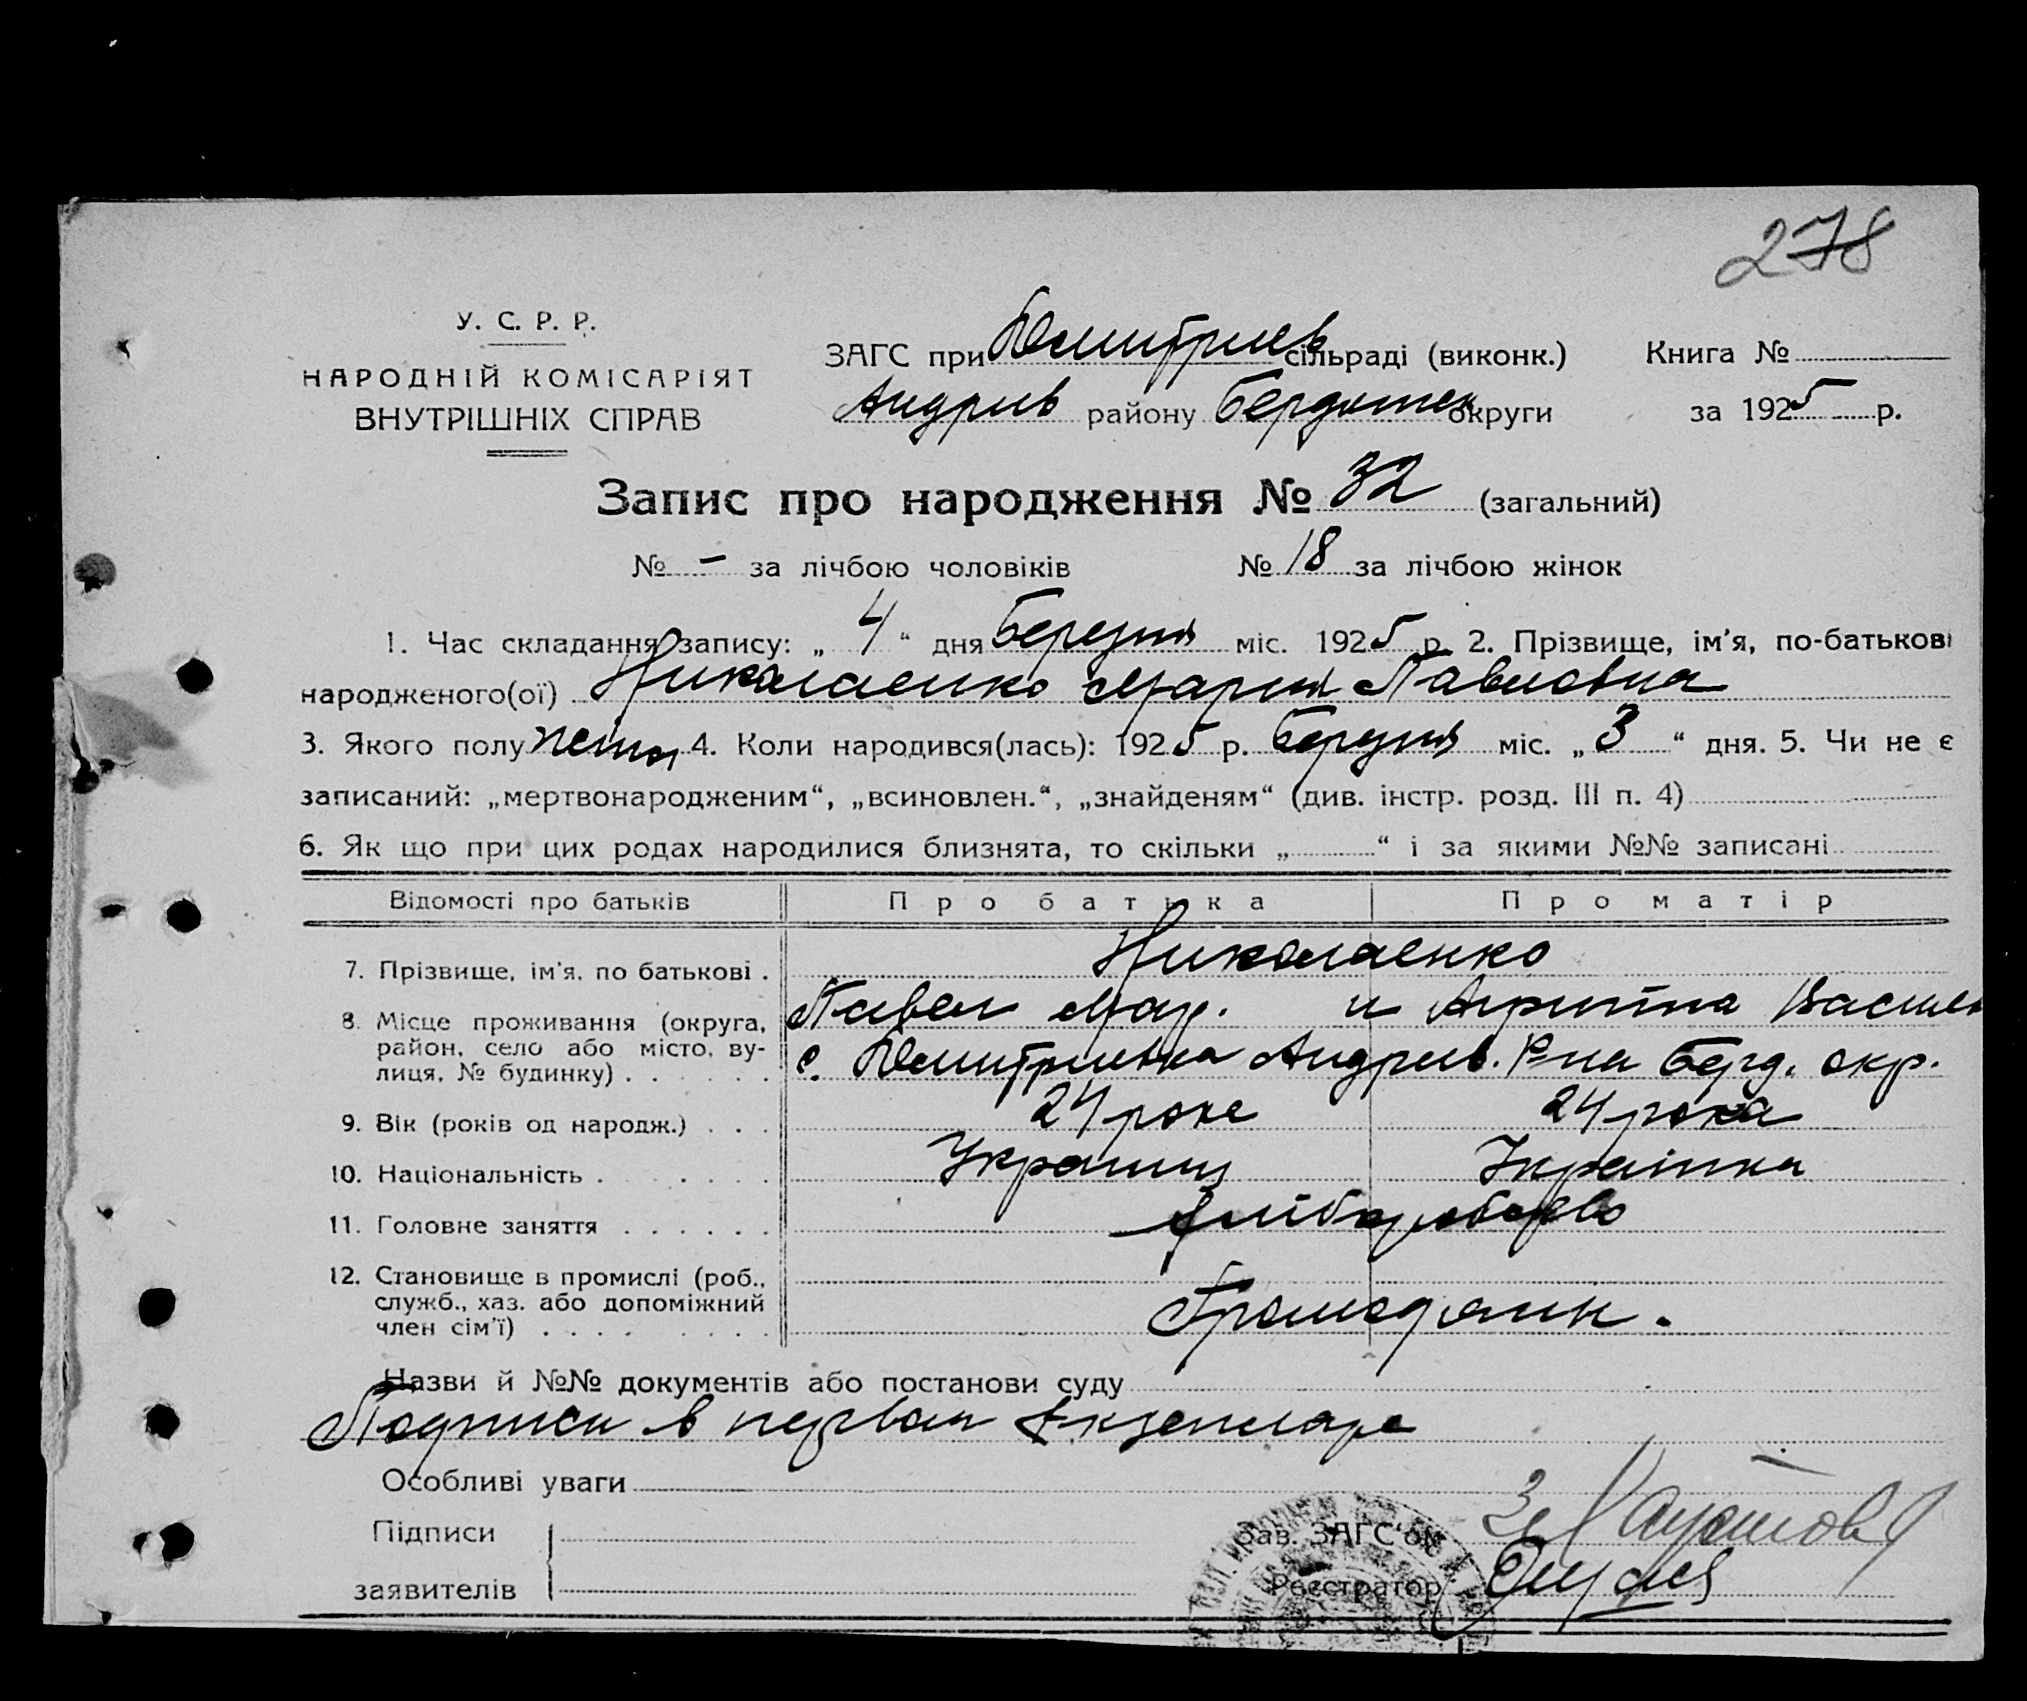 278
У. С. Р. Р.
НАРОДНІЙ КОМІСАРІЯТ
ВНУТРІШНІХ СПРАВ
ЗАГС при Дмитриев сільраді (виконк.) Книга №
Андрив району Бердянск округи за 1925 р.
Запис про народження № 32 (загальний)
№ - за лічбою чоловіків № 18 за лічбою жінок
1. Час складання запису: „4“ дня Березня міс. 1925 р. 2. Прізвище, ім'я, по-батькові
народженого(ої) Николаенко Мария Павловна
3. Якого полу 4. Коли народився(лась): 1925 р. Березня міс. „3“ дня. 5. Чи не є
записаний: „мертвонародженим“, „всиновлен.“, „знайденям“ (див. інстр. розд. III п. 4)
6. Як що при цих родах народилися близнята, то скільки „ “ і за якими №№ записані
Відомості про батьків Про батька Про матір
7. Прізвище, ім'я, по батькові . Николаенко
Павел Мар. и Василь
8. Місце проживання (округа,
район, село або місто, ву-
лиця, № будинку) . . . . . . с. Дмитриевка Андрив. Р-на Берд. окр.
9. Вік (років од народж.) . . . 24 роке 24 рока
10. Національність . . . . . . . Украинц Українка
11. Головне заняття . . . . . . Хлібаробство
12. Становище в промислі (роб.,
служб., хаз. або допоміжний
член сім'ї) . . . . . . . . . Громодянин.
Назви й №№ документів або постанови суду
Подписи в первом екземпляре
Особливі уваги
Підписи
заявителів
Зав. ЗАГС'ом
Реєстратор